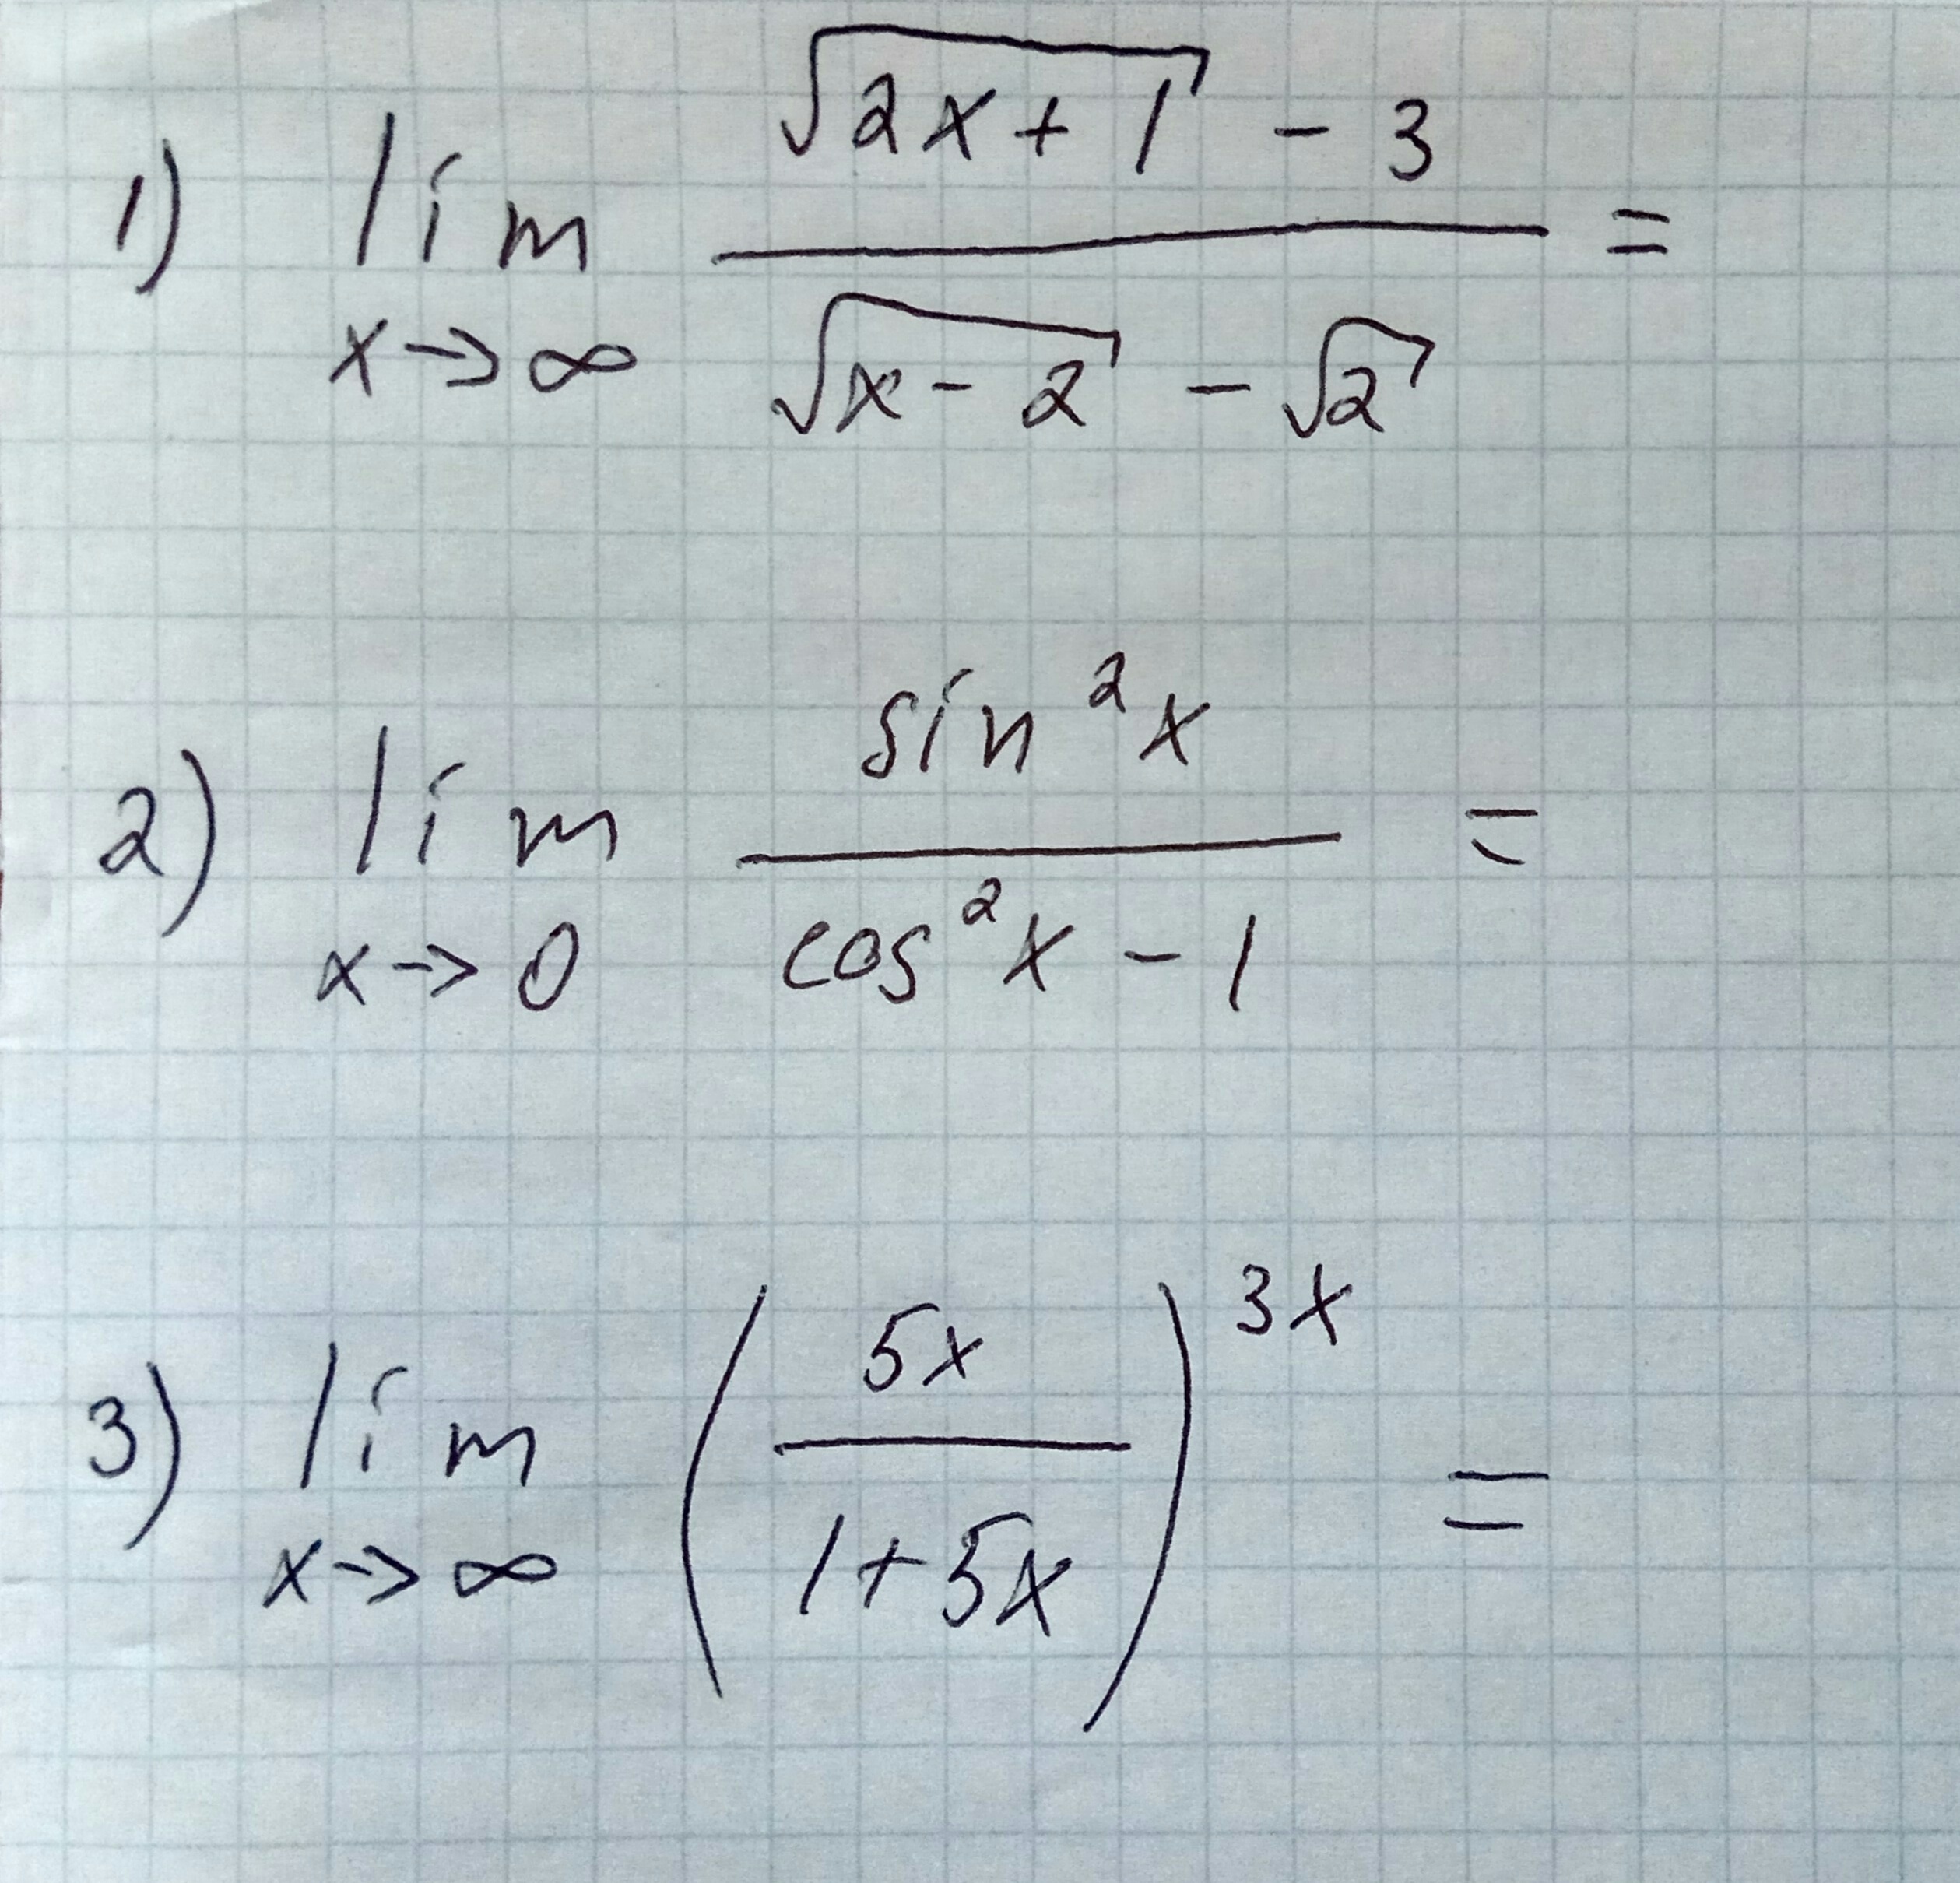 1) lim x→∞ (√(2x+1) - 3) / (√(x-2) - √2) =
2) lim x→0 sin²x / (cos²x - 1) =
3) lim x→∞ (5x / (1+5x))^(3x) =